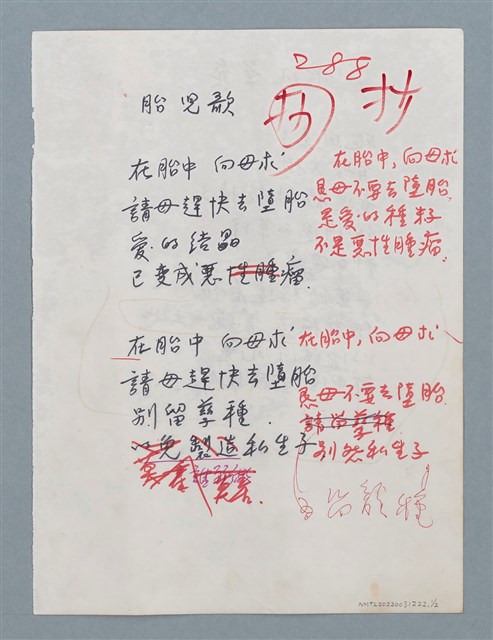 288
抄
胎児歌
在胎中 向母求
請母趕快去墮胎
愛的結晶
已变成惡性腫瘤.
在胎中 向母求
請母趕快去墮胎
别留孽種.
以免製造私生子
在胎中,向母求
恳母不要去墮胎.
是爱的種籽
不是惡性腫瘤.
在胎中,向母求
恳母不要去墮胎.
請留孽種.
别怨私生子
NMTL20020031222.1/2